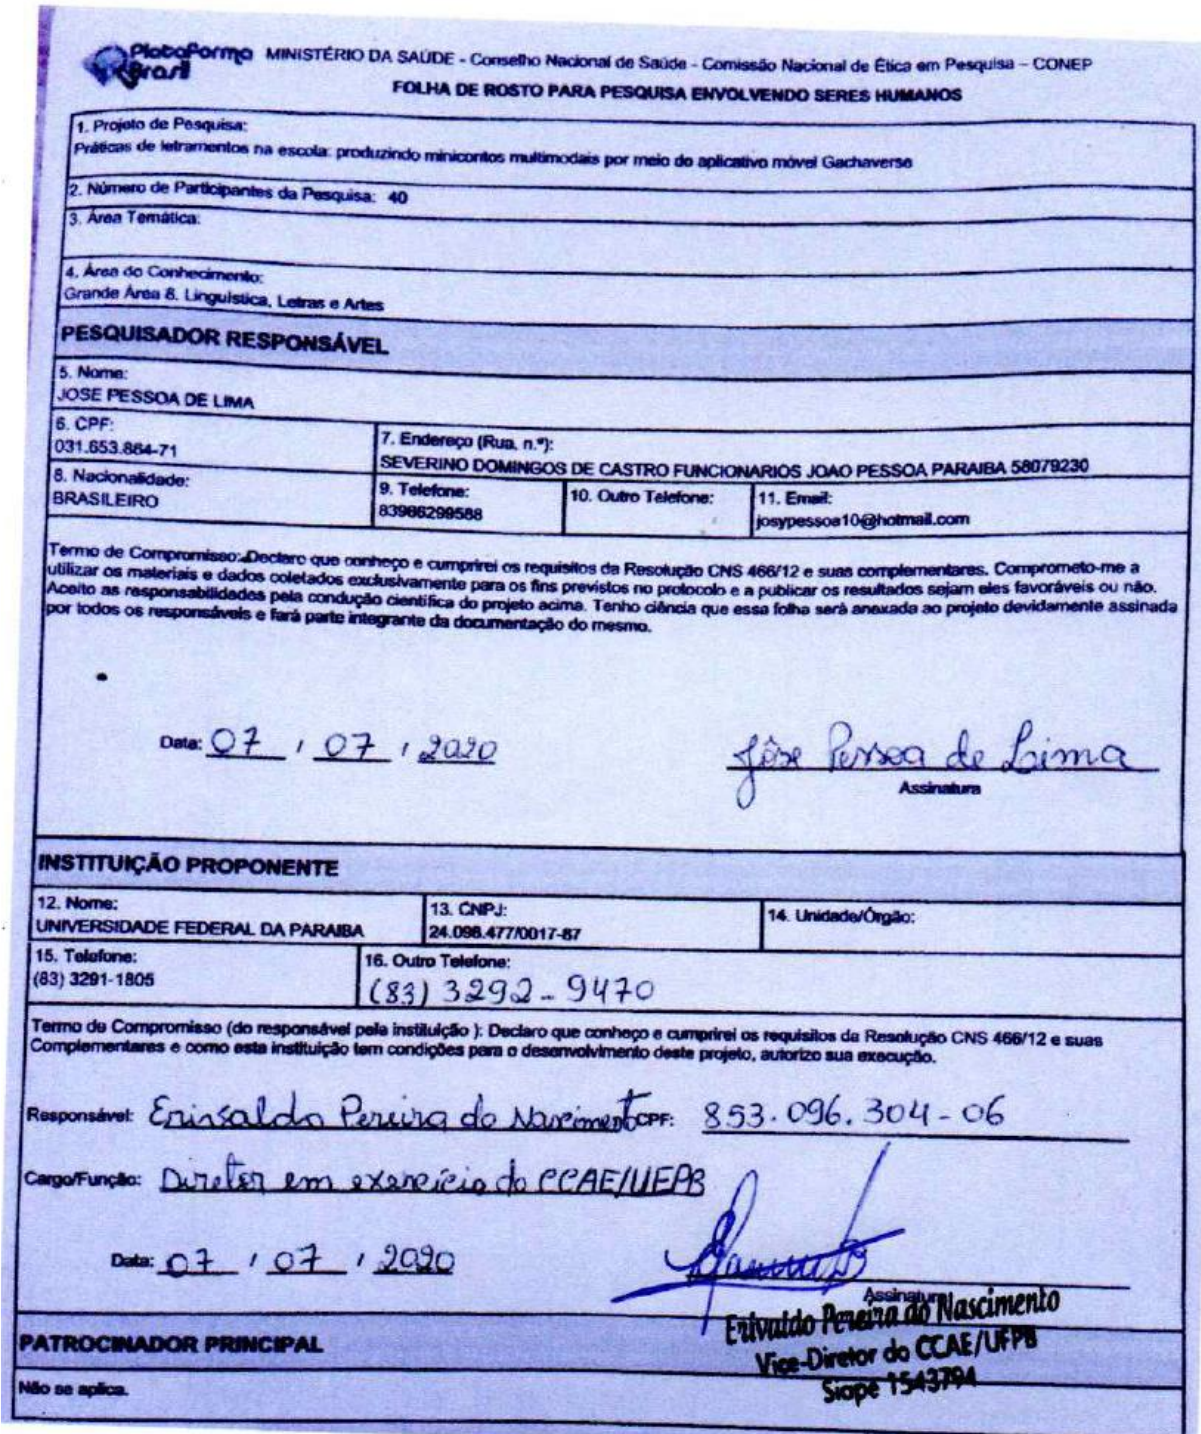 Plataforma Brasil
MINISTÉRIO DA SAÚDE - Conselho Nacional de Saúde - Comissão Nacional de Ética em Pesquisa – CONEP
FOLHA DE ROSTO PARA PESQUISA ENVOLVENDO SERES HUMANOS
1. Projeto de Pesquisa:
Práticas de letramentos na escola: produzindo minicontos multimodais por meio do aplicativo móvel Gachaverse
2. Número de Participantes da Pesquisa: 40
3. Área Temática:
4. Área do Conhecimento:
Grande Área 8. Linguística, Letras e Artes
PESQUISADOR RESPONSÁVEL
5. Nome:
JOSE PESSOA DE LIMA
6. CPF:
031.653.864-71
7. Endereço (Rua, n.º):
SEVERINO DOMINGOS DE CASTRO FUNCIONARIOS JOAO PESSOA PARAIBA 58079230
8. Nacionalidade:
BRASILEIRO
9. Telefone:
83986299588
10. Outro Telefone:
11. Email:
josypessoa10@hotmail.com
Termo de Compromisso: Declaro que conheço e cumprirei os requisitos da Resolução CNS 466/12 e suas complementares. Comprometo-me a
utilizar os materiais e dados coletados exclusivamente para os fins previstos no protocolo e a publicar os resultados sejam eles favoráveis ou não.
Aceito as responsabilidades pela condução científica do projeto acima. Tenho ciência que essa folha será anexada ao projeto devidamente assinada
por todos os responsáveis e fará parte integrante da documentação do mesmo.
Data: 07 / 07 / 2020
Jose Pessoa de Lima
Assinatura
INSTITUIÇÃO PROPONENTE
12. Nome:
UNIVERSIDADE FEDERAL DA PARAIBA
13. CNPJ:
24.098.477/0017-87
14. Unidade/Órgão:
15. Telefone:
(83) 3291-1805
16. Outro Telefone:
(83) 3292-9470
Termo de Compromisso (do responsável pela instituição ): Declaro que conheço e cumprirei os requisitos da Resolução CNS 466/12 e suas
Complementares e como esta instituição tem condições para o desenvolvimento deste projeto, autorizo sua execução.
Responsável: Erivaldo Pereira do Nascimento CPF: 853.096.304-06
Cargo/Função: Diretor em exercício do CCAE/UFPB
Data: 07 / 07 / 2020
Assinatura
Erivaldo Pereira do Nascimento
Vice-Diretor do CCAE/UFPB
Siape 1543794
PATROCINADOR PRINCIPAL
Não se aplica.